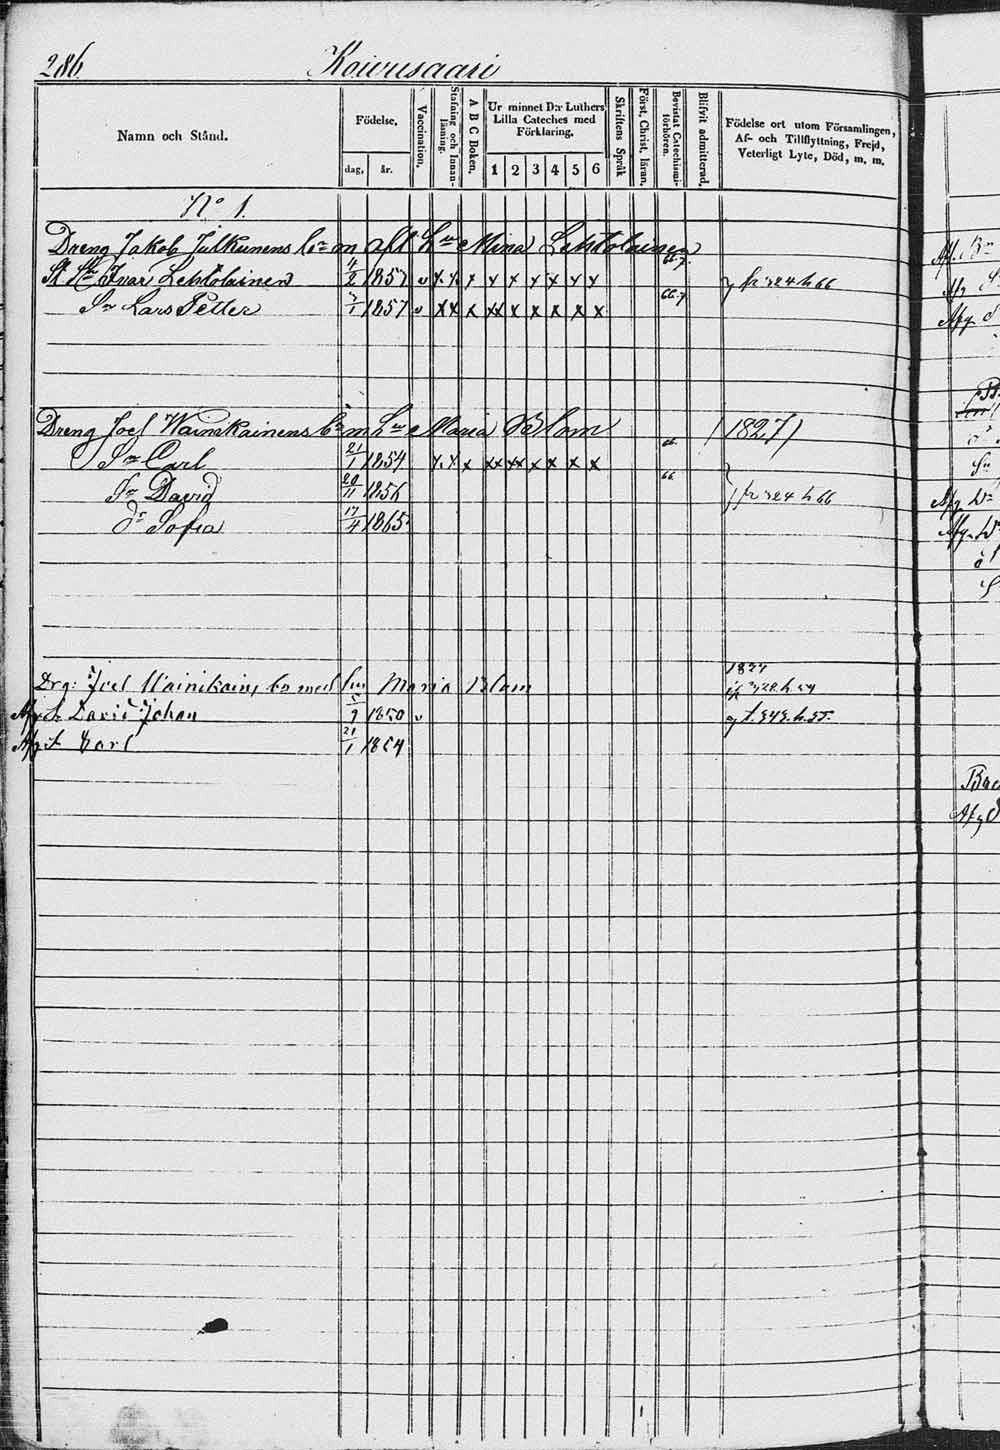 286 Koivusaari
Namn och Stånd.
Födelse,
dag, år.
Vaccination,
Stafning och Innan-läsning.
A B C Boken,
Ur minnet D:r Luthers
Lilla Cateches med
Förklaring,
1 2 3 4 5 6
Skriftens Språk
Först, Christ, läran,
Bevistat Catechismi-förhören.
Blifvit admitterad,
Födelse ort utom Församlingen,
Af- och Tillflyttning, Frejd,
Veterligt Lyte, Död, m. m.
No 1.
Dreng Jakob Julkunens bn m afl hu Mina Lehtolainen
Ivar Lehtolainen 4/2 1857 v x x x x x x x x x fr 324 h 66
Sn Lars Petter 1857 v x x x xx x x x x x
Dreng Joel Wainikainens bn m hu Maria Blom (1827)
Sn Carl 21/1 1854 x x x xx xx x x x x 66
Sn David 20/11 1856 66 fr 324 h 66
dr Sofia 17/4 1865
Drg: Joel Wainikains bn med hu Maria Blom 1827
David Johan 5/9 1850 v
Carl 21/1 1854